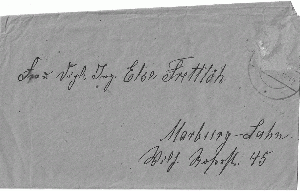 Frau Dipl. Ing. Else Frettlöh
Marburg-Lahn
Wilh. Roserst. 45